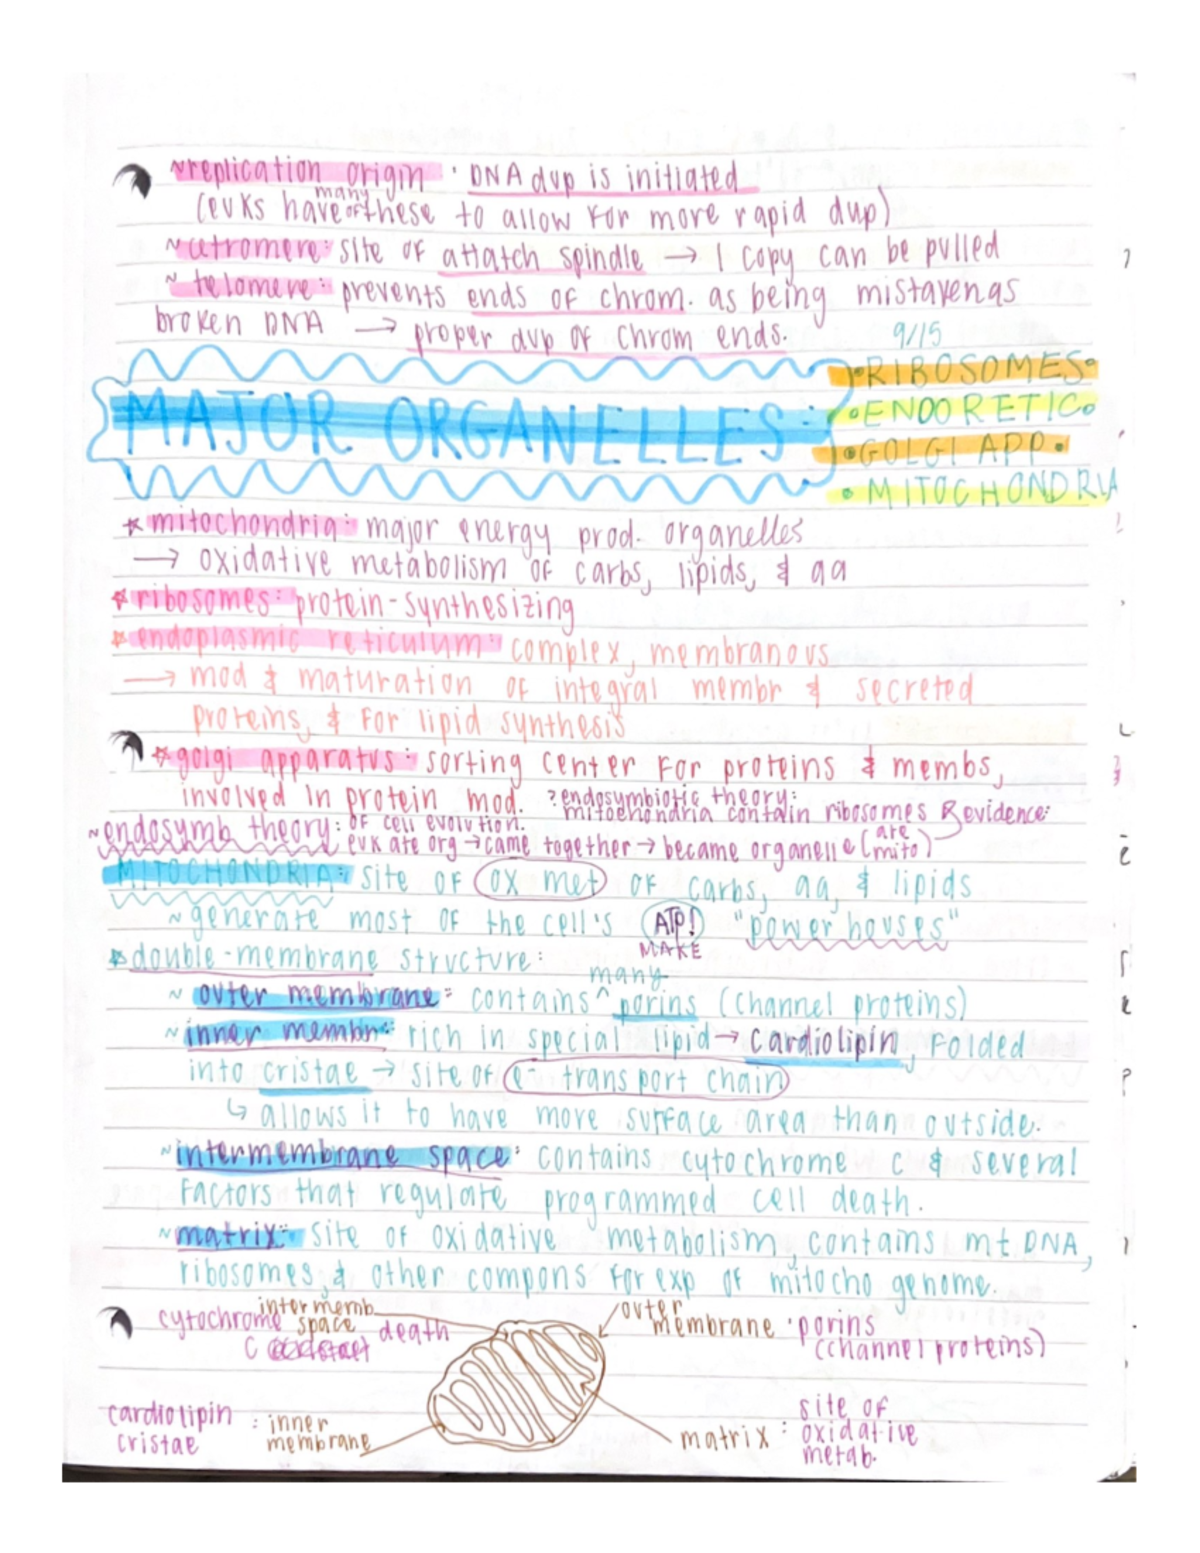 ~replication origin : DNA dup is initiated
(euks have many of these to allow for more rapid dup)
~cetromere: site of attatch spindle → 1 copy can be pulled
~ telomere: prevents ends of chrom. as being mistaken as
broken DNA → proper dup of chrom ends.
9/15
MAJOR ORGANELLES:
•RIBOSOMES•
•ENDO RETIC•
•GOLGI APP•
• MITOCHONDRIA
☆mitochondria: major energy prod. organelles
→ oxidative metabolism of carbs, lipids, & aa
☆ribosomes: protein-synthesizing
☆endoplasmic reticulum: complex, membranous
→ mod & maturation of integral membr & secreted
proteins, & for lipid synthesis
☆golgi apparatus: sorting center for proteins & membs,
involved in protein mod.
?endosymbiotic theory:
mitochondria contain ribosomes & evidence:
~endosymb theory: of cell evolution.
euk ate org → came together → became organelle (are mito)
MITOCHONDRIA: site of ox met of carbs, aa, & lipids
~generate most of the cell's ATP! "power houses"
MAKE
☆double-membrane structure:
~ outer membrane: contains ^ many porins (channel proteins)
~inner membr: rich in special lipid → cardiolipin, folded
into cristae → site of e⁻ transport chain
↳ allows it to have more surface area than outside.
~intermembrane space: contains cytochrome c & several
factors that regulate programmed cell death.
~matrix: site of oxidative metabolism, contains mt DNA,
ribosomes, & other compons for exp of mitocho genome.
cytochrome C death
inter memb space
outer membrane • porins
(channel proteins)
cardiolipin
cristae
: inner
membrane
matrix : site of
oxidative
metab.